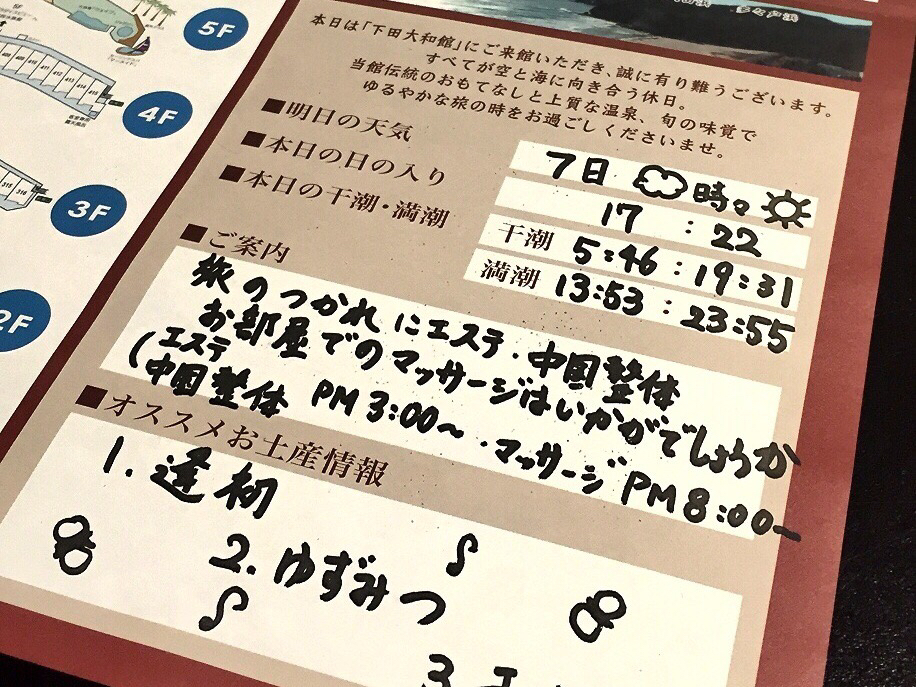 5F
4F
3F
2F
本日は「下田大和館」にご来館いただき、誠に有り難うございます。
すべてが空と海に向き合う休日。
当館伝統のおもてなしと上質な温泉、旬の味覚で
ゆるやかな旅の時をお過ごしくださいませ。
■明日の天気 7日 時々
■本日の日の入り 17:22
■本日の干潮・満潮 干潮 5:46:19:31
満潮 13:53:23:55
■ご案内
旅のつかれにエステ・中国整体
お部屋でのマッサージはいかがでしょうか
(エステ
中国整体 PM3:00~・マッサージ PM8:00~
■オススメお土産情報
1. 逢初
2. ゆずみつ
3.